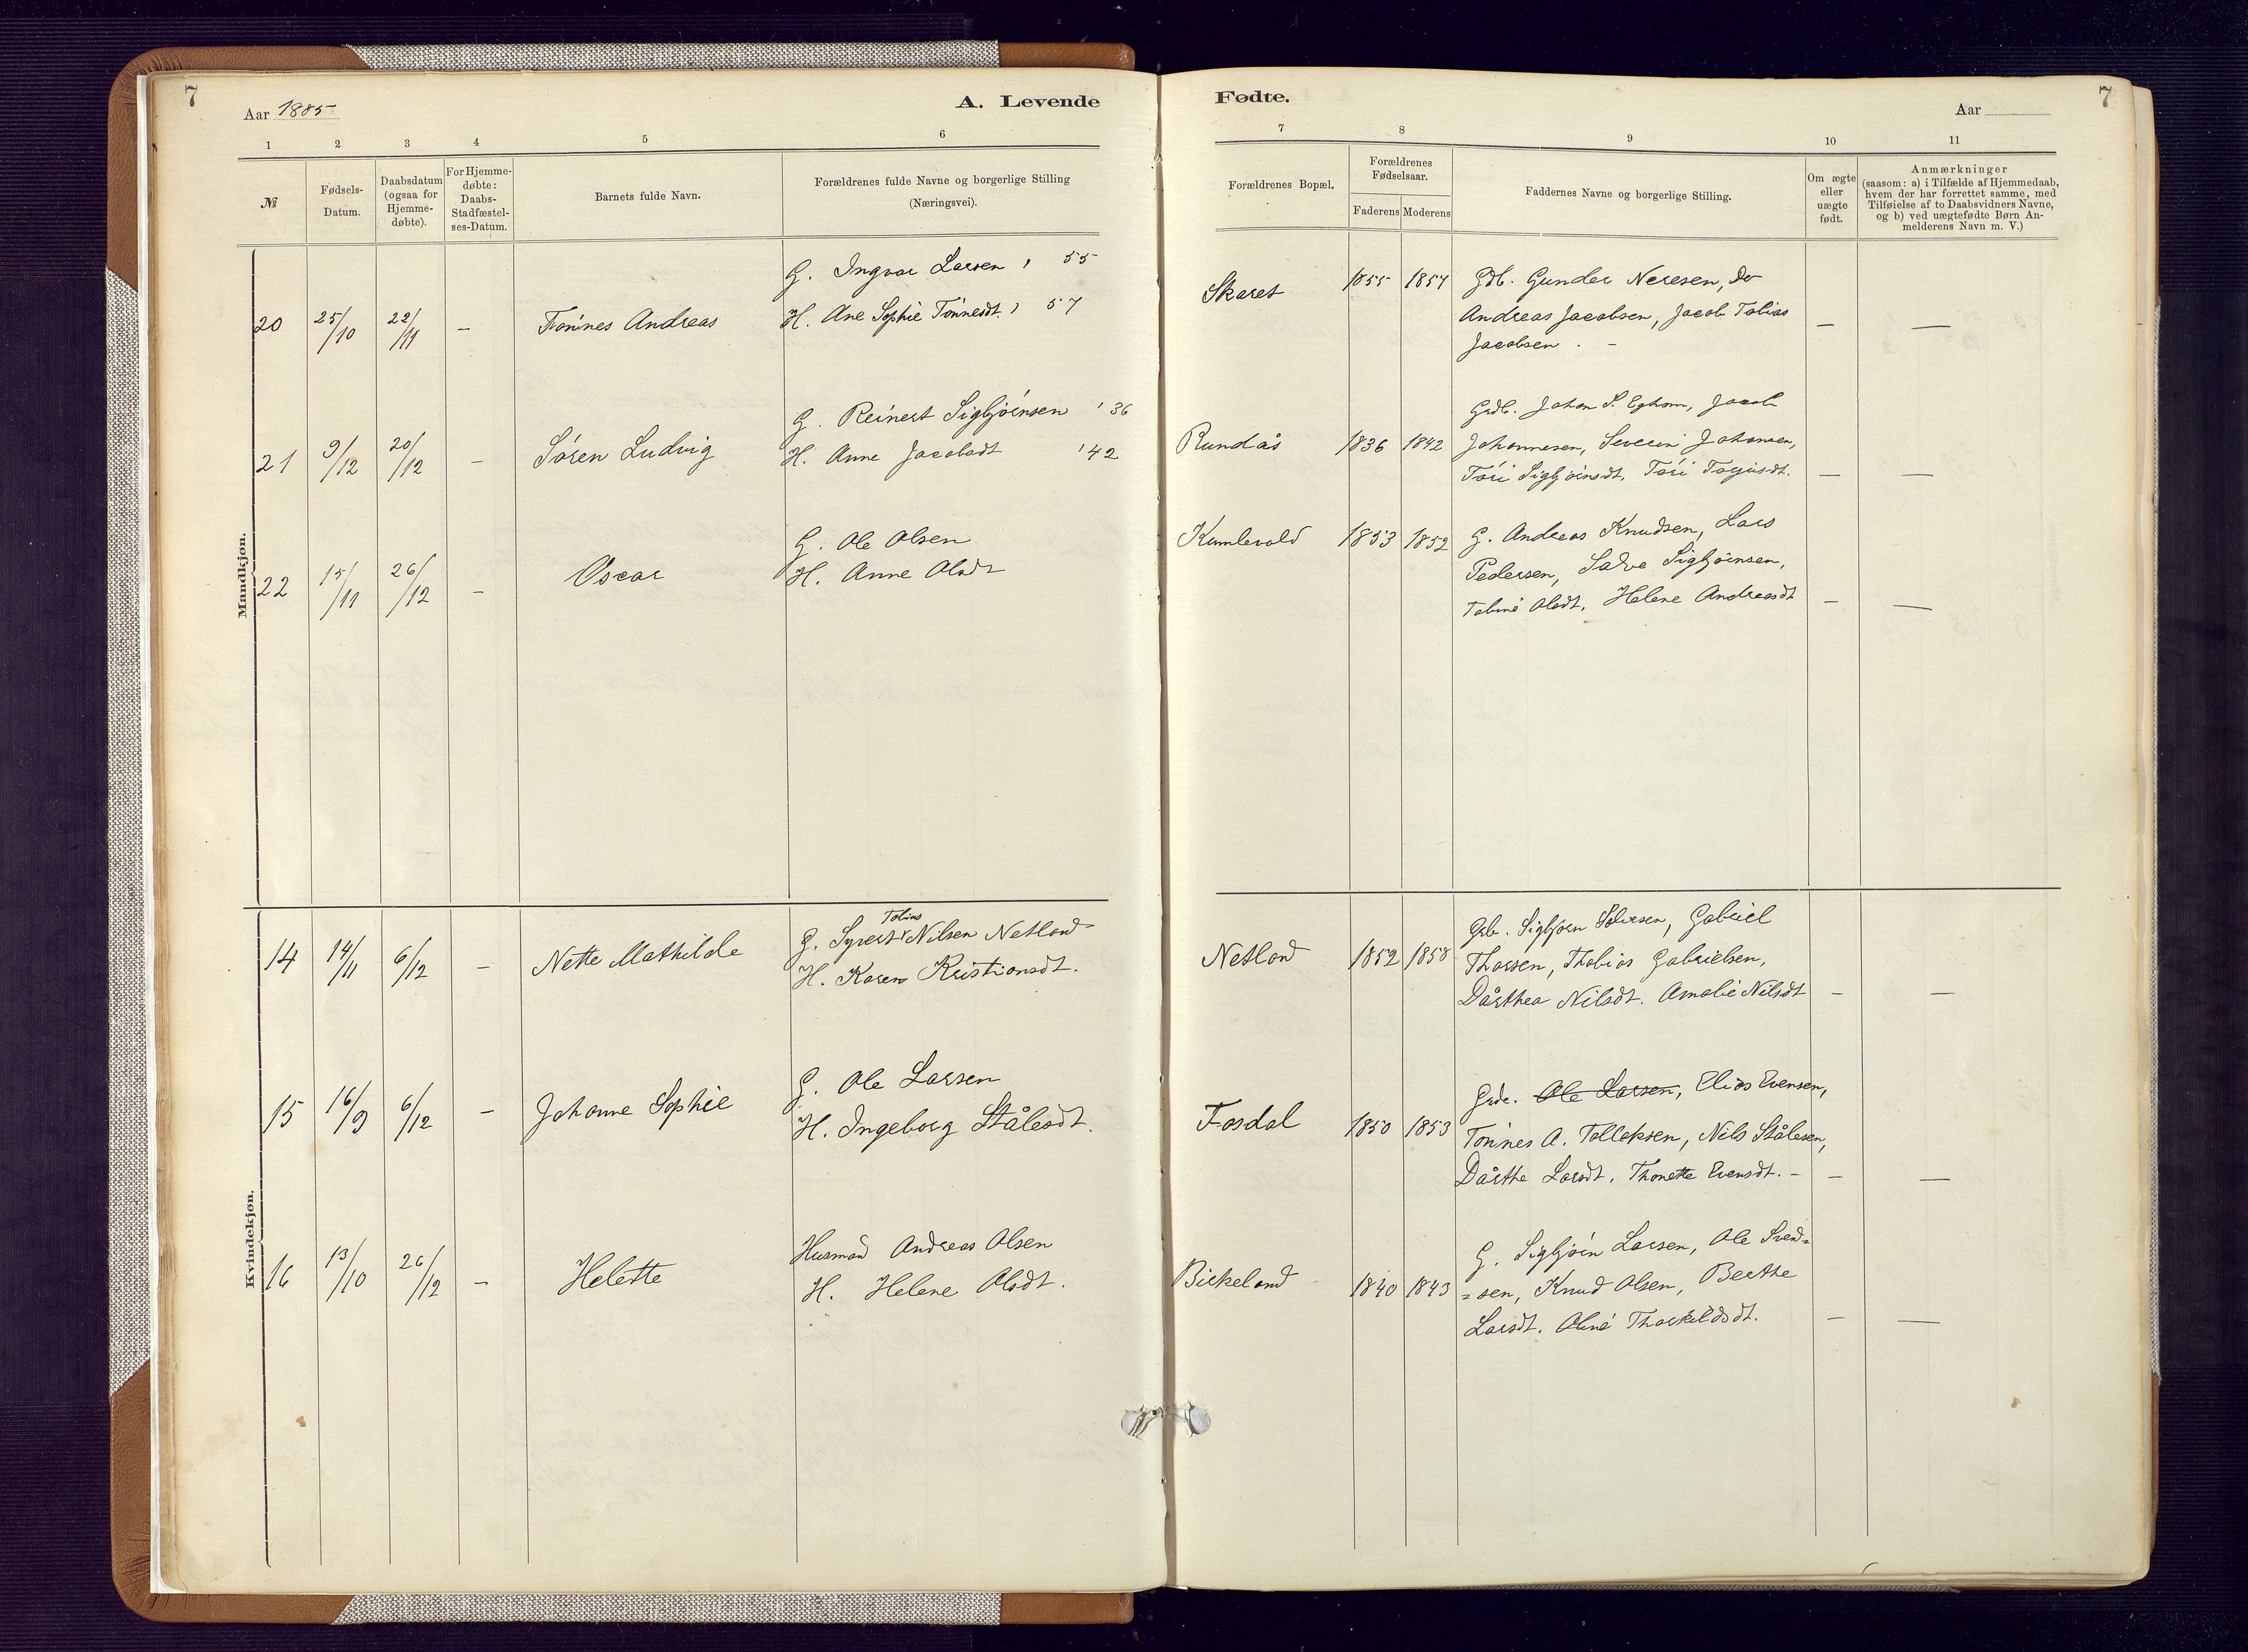 7
Aar 1885
A. Levende
1 2 3 4 5 6
№
Fødsels-
Datum.
Daabsdatum
(ogsaa for
Hjemme-
døbte).
For Hjemme-
døbte:
Daabs-
Stadfæstel-
ses-Datum.
Barnets fulde Navn.
Forældrenes fulde Navne og borgerlige Stilling
(Næringsvei).
Mandkjøn.
G. Ingvar Larsen ' 55
20 25/10 22/11 – Tønnes Andreas H. Ane Sophie Tønnesdt. ' 57
G. Reinert Sigbjørnsen ' 36
21 9/12 20/12 – Søren Ludvig H. Anne Jacobsdt ' 42
G. Ole Olsen
22 15/11 26/12 – Oscar H. Anne Olsdt
Kvindekjøn.
Tobias
G. Syvert Nilsen Netland
14 14/11 6/12 – Nette Mathilde H. Karen Kristiansdt.
G. Ole Larsen
15 16/9 6/12 – Johanne Sophie H. Ingeborg Stålesdt.
Husmand Andreas Olsen
16 13/10 26/12 – Helette H. Helene Olsdt.
Fødte.
7
Aar
7 8 9 10 11
Forældrenes Bopæl.
Forældrenes
Fødselsaar.
Faderens Moderens
Faddernes Navne og borgerlige Stilling.
Om ægte
eller
uægte
født.
Anmærkninger
(saasom: a) i Tilfælde af Hjemmedaab,
hvem der har forrettet samme, med
Tilføielse af to Daabsvidners Navne,
og b) ved uægtefødte Børn An-
melderens Navn m. V.)
Skaret 1855 1857 Gdb. Gunder Neresen, Do
Andreas Jacobsen, Jacob Tobias
Jacobsen. – – —
Grdb. Johan S. Egham, Jacob
Rundås 1836 1842 Johannesen, Severin Johansen,
Tøri Sigbjørnsdt, Tøri Torjusdt. – —
Kumlevold 1853 1852 G. Andreas Knudsen, Lars
Pedersen, Salve Sigbjørnsen,
Tobine Olsdt. Helene Andreasdt – —
Grb. Sigbjørn Salvesen, Gabriel
Netland 1852 1858 Tharsen, Thobias Gabrielsen,
Dårthea Nilsdt. Amalie Nilsdt – —
Grde. Ole Larsen, Elias Evensen,
Fosdal 1850 1853 Tønnes A. Tollaksen, Nils Stålesen,
Dårthe Larsdt, Thonette Evensdt. – – —
G. Sigbjørn Larsen, Ole Svend=
Birkeland 1840 1843 =sen, Knud Olsen, Berthe
Larsdt. Oliné Tharkildsdt. – —